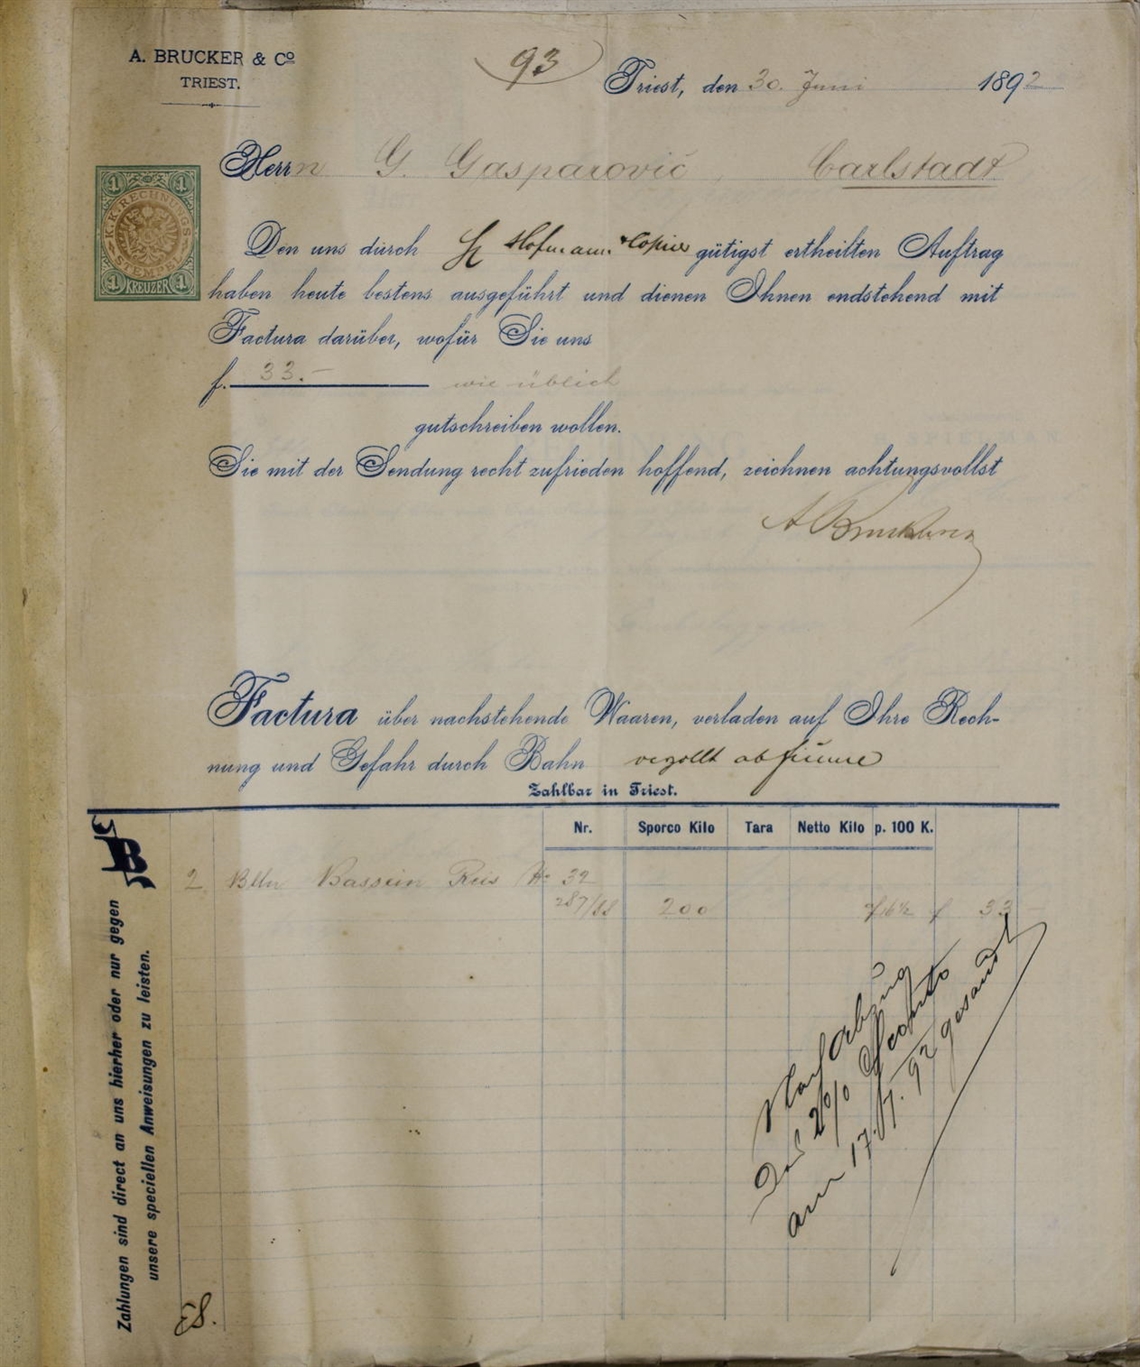 A. BRUCKER & Cº
TRIEST.
93
Triest, den 30. Juni 1892
Herrn G. Gasparović, Carlstadt
K.K. RECHNUNGS STEMPEL
1 KREUZER 1
Den uns durch H Hofmann & gütigst ertheilten Auftrag
haben heute bestens ausgeführt und dienen Ihnen endstehend mit
Factura darüber, wofür Sie uns
f. 33.- wie üblich
gutschreiben wollen.
Sie mit der Sendung recht zufrieden hoffend, zeichnen achtungsvollst
Factura über nachstehende Waaren, verladen auf Ihre Rech-
nung und Gefahr durch Bahn verzollt ab Fiume
Zahlbar in Triest.
Nr. Sporco Kilo Tara Netto Kilo p. 100 K.
2 Blln Bassein Reis No 32
287/88 200 f 16½ f 33 -
Nach Abzug
des 2% Sconto
am 17./7. 92 gesandt
Zahlungen sind direct an uns hierher oder nur gegen
unsere speciellen Anweisungen zu leisten.